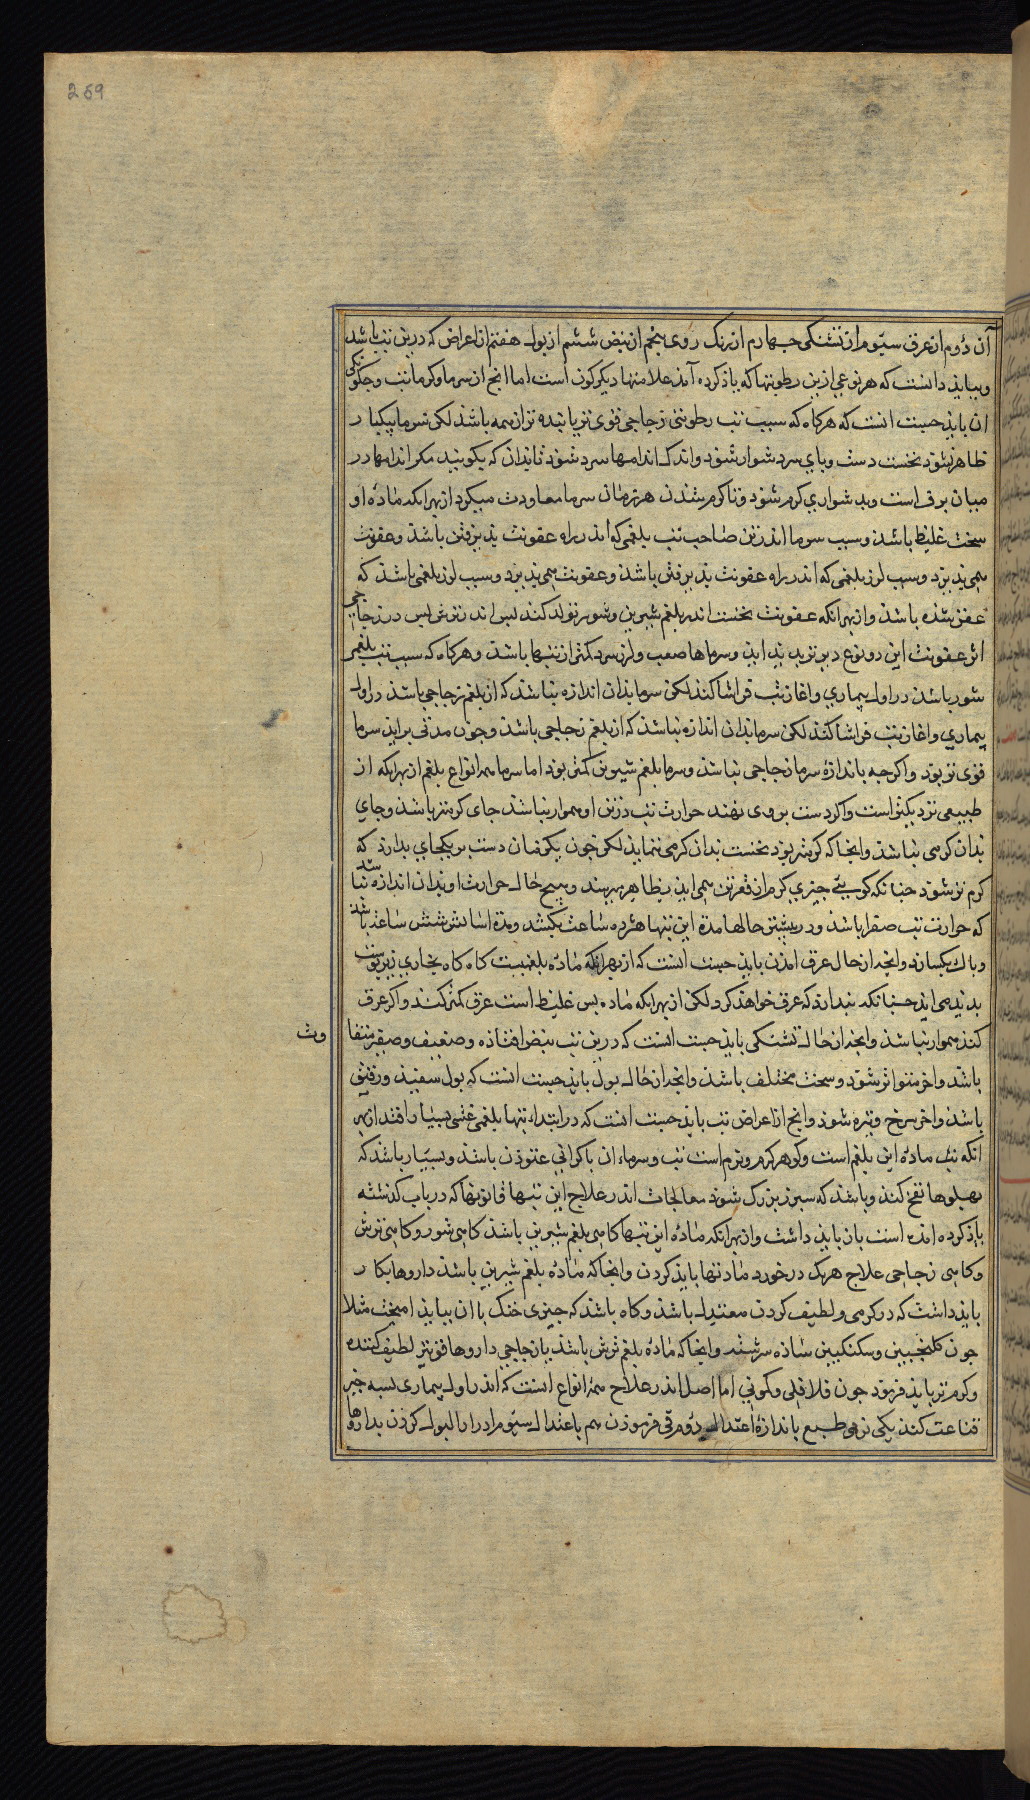 269
آن دوم از عرق سیوم از تشنکی چهارم از رنک روی پنجم از نبض ششم از بول هفتم از اعراض که درین تب باشد
و بباید دانست که هر نوعی ازین رطوبتها که یاذ کرده آمذ علامتها دیکرکون است اما انج از سرما و کرما تب و چکونکی
ان باید جست انست که هرکاه که سبب تب رطوبتی زجاجی قوی تر باشد تر از همه باشذ لکن سرما بیکبار
ظاهر نشود نخست دست و پای سرد شوار شوذ و اندک اندامها سرد شوذ تا بذان که بکویند مکر اندامها در
میان برف است و بدشواری کرم شوذ و تا کرم شدن هر زمان سرما معاودت میکرد از بهر انکه ماده او
سخت غلیظ باشذ و سبب سرما اندر تن صاحب تب بلغمی که اندر راه عفونت پذیرفتن باشذ و عفونت
همی پذیرد و سبب لرز بلغمی که اندر راه عفونت پذیرفتن باشذ و عفونت همی پذیرد و سبب لرز بلغمی باشذ که
عفن شده باشذ و از بهر انکه عفونت نخست اندر بلغم شیرین و شور تولد کند پس اندر ترش پس در زجاجی
اثر عفونت این دو نوع دیرتر پدید ایذ و سرماها صعب و لرز سرد کمتر از تبها باشذ و هرکاه که سبب تب بلغم
شور باشذ در اول بیماری و اغاز تب فراشا کنذ لکن سرما بذان اندازه نباشذ که از بلغم زجاجی باشذ در اول
بیماری و اغاز تب فراشا کنذ لکن سرما بذان اندازه نباشذ که از بلغم زجاجی باشذ و چون مدتی براید سرما
قوی تر بوذ و اکرچه باندازه سرما زجاجی نباشذ و سرما بلغم شیرین کمتر بوذ اما سرما همه انواع بلغم از بهر انکه ان
طبیعی نزدیکتر است و اکر دست بروی نهند حرارت تب در تن او هموار نباشذ جای کرمتر باشذ و جای
بذان کرمی نباشذ و انجا که کرمتر بوذ نخست بذان کرمی ننماید لکن چون یکزمان دست بر یکجای بدارذ که
کرم تر شوذ چنانکه کویئی چیزی کرم از قعر تن همی ایذ بظاهر بیرون و هیچ حال حرارت او بذان اندازه نباشذ
که حرارت تب صفرا باشذ و در بیشتر حالها مدة این تبها هژده ساعت بکشد و مدة اسایش شش ساعت باشذ
و پاک نکسارد و انچه از حال عرق امذن باید جست انست که از بهر انکه ماده بلغمیست کاه کاه بخاری زیر پوست
بدید می ایذ چنانکه بندارذ که عرق خواهذ کرد لکن از بهر انکه ماده بس غلیظ است عرق کمتر کند و اکر عرق
کند هموار نباشذ و انچه از حال تشنکی باید جست انست که درین تب نبض افتاذه و ضعیف و صغیر متفا
وت
باشذ و اخر متواتر شوذ و سخت مختلف باشذ و انچه از حال بول باید جست انست که بول سفید و رقیق
باشذ و اخر سرخ و تیره شوذ و انچ از اعراض تب باید جست انست که در ابتداء تبها بلغمی غشی بسیار افتد از بهر
انکه تب ماده این بلغم است و کوهر کرم و نرم است تب و سرماء ان با کرانی غنوذن باشذ و بسیار باشذ که
پهلوها نفخ کند و باشذ که سبرز بزرک شوذ معالجات اندر علاج این تبها قانونها که در باب کذشته
یاذ کرده امده است باز باید داشت و از بهر انکه ماده این تبها کاهی بلغم شیرین باشذ کاهی شور و کاهی ترش
و کاهی زجاجی علاج هریک درخورد مادتها باید کردن و انجا که ماده بلغم شیرین باشذ داروها بکار
باید داشت که در کرمی و لطیف کردن معتدل باشذ و کاه باشذ که چیزی خنک با ان بباید امیخت مثلا
چون کلنجبین و سکنکبین ساذه سرشته و انجا که ماده بلغم ترش باشذ یا زجاجی داروها قوی تر لطیف کننده
و کرم تر باید فرموذ چون فلافلی و کمونی اما اصل اندر علاج همه انواع انست که اندر اول بیماری بسه چیز
قناعت کند یکی نرمی طبع باندازه اعتدال دوم قی فرموذن هم باعتدال سیوم ادرار البول کردن بداروها